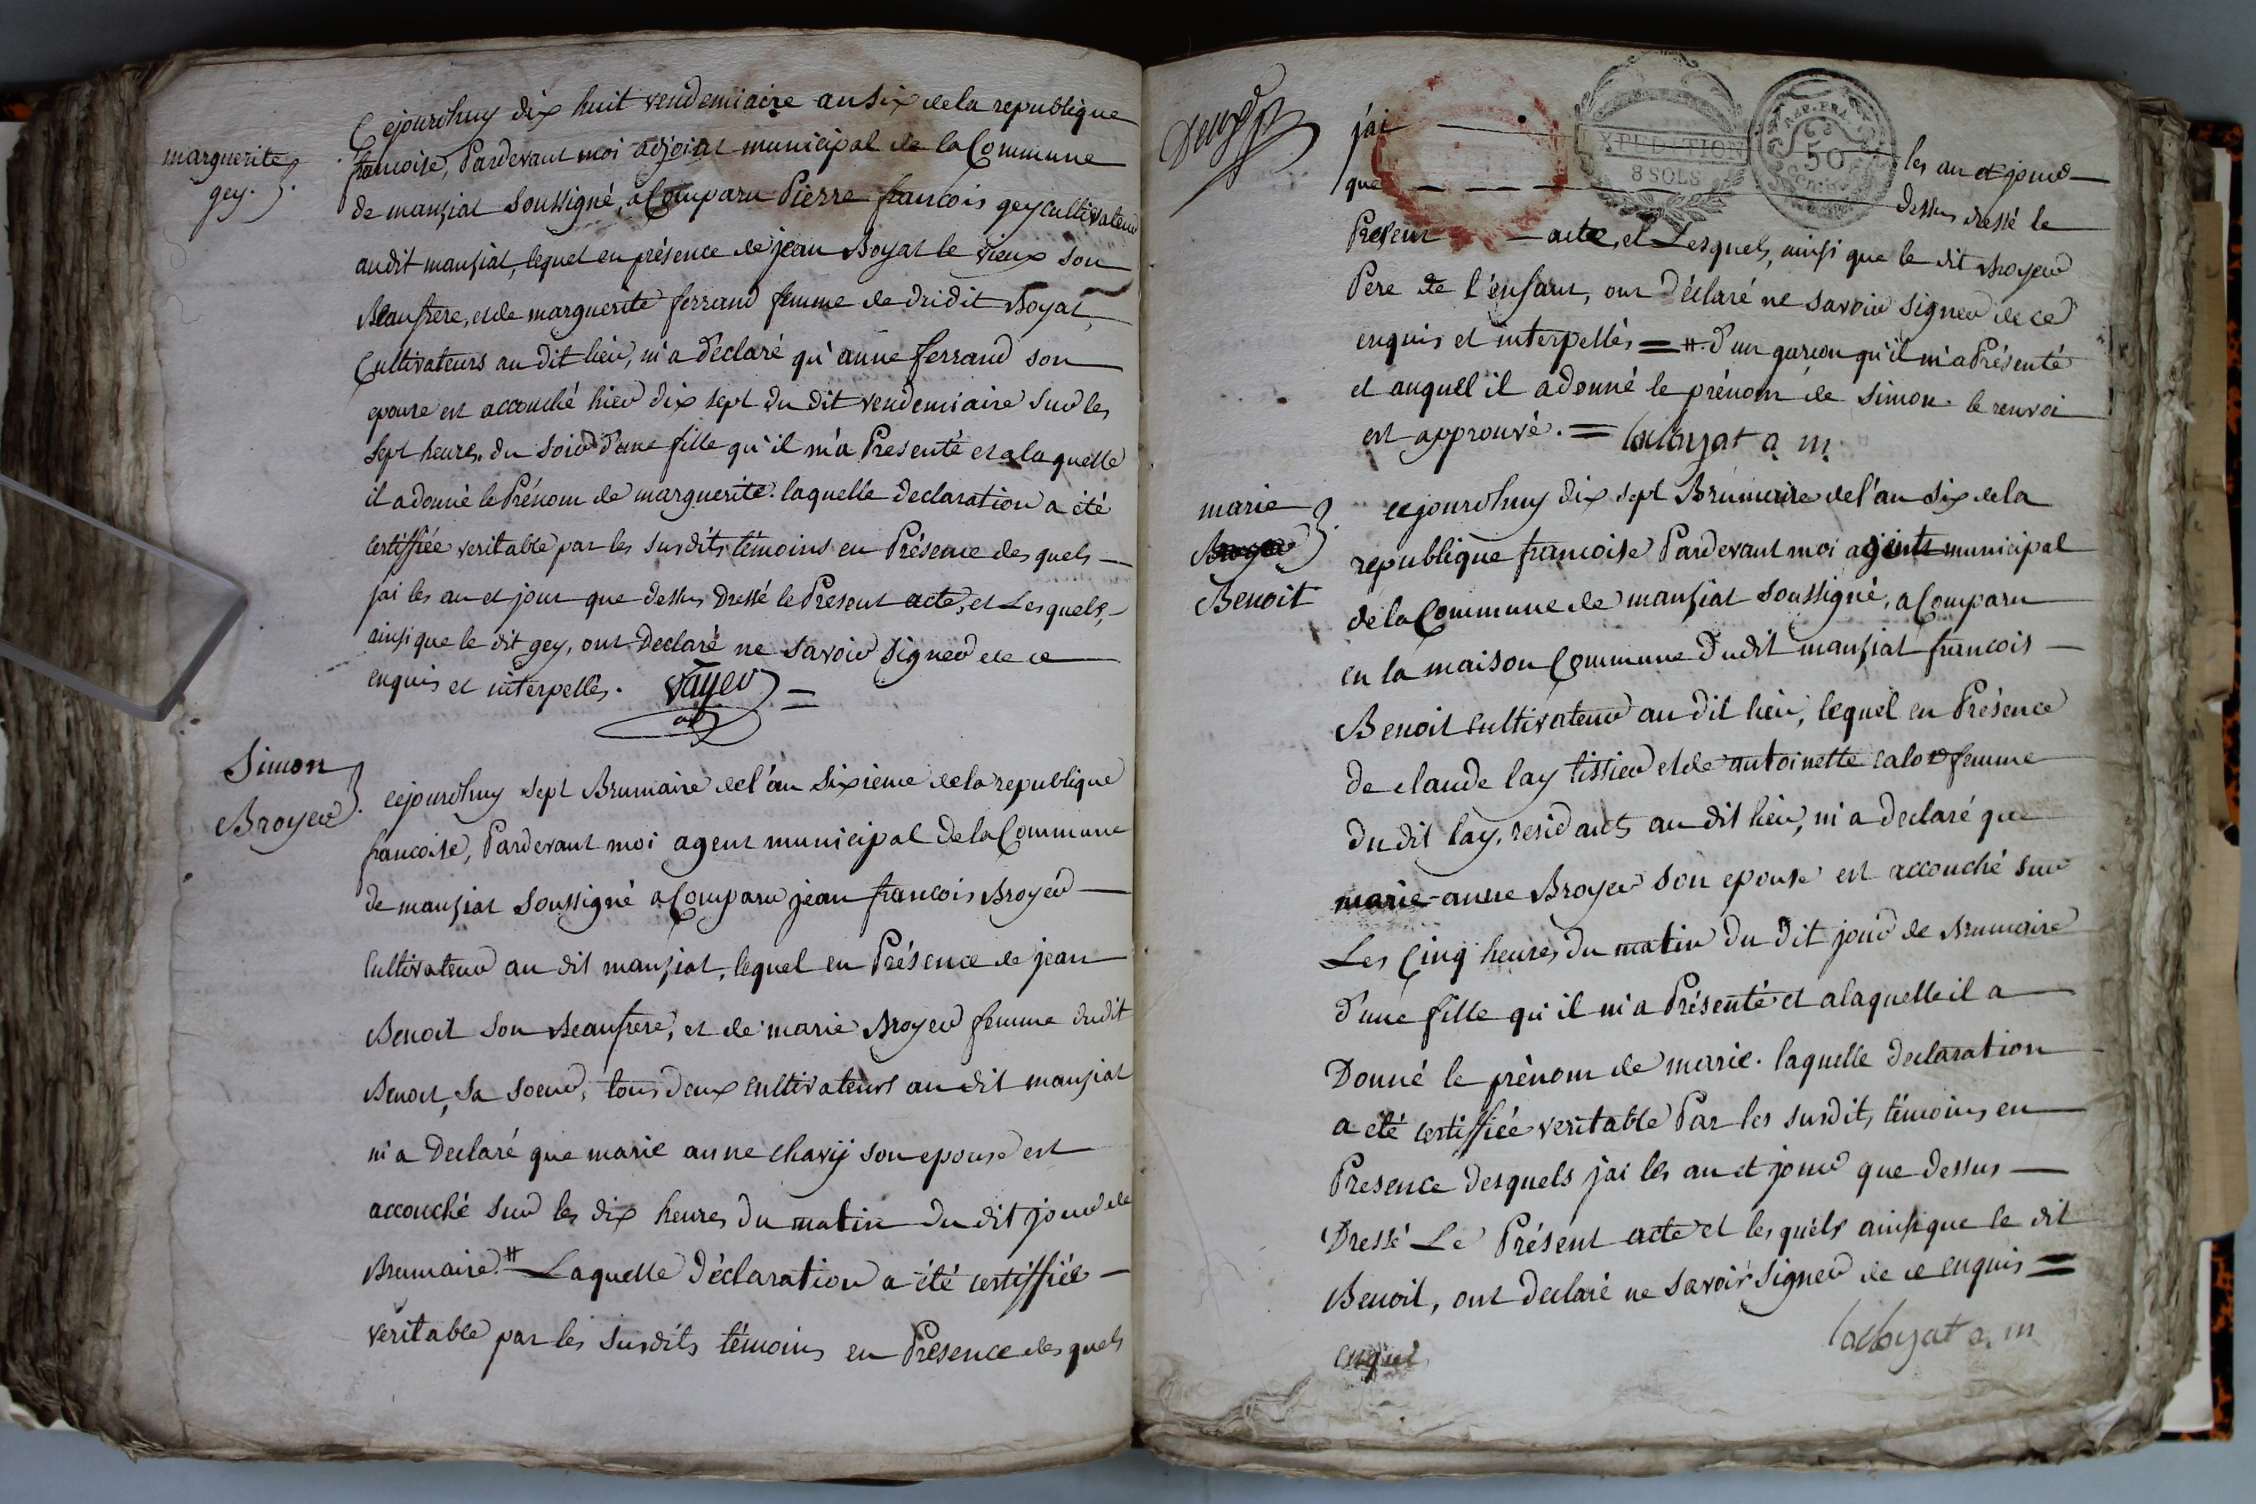 marguerite
gey.
Cejourdhuy dix huit vendemiaire an six de la republique
francoise, Pardevant moi adjoint municipal de la Commune
de manziat soussigné, a Comparu Pierre francois gey cultivateur
audit manziat, lequel en présence de jean Boyat le vieux son
Beaufrere, et de marguerite ferrand femme de dudit Boyat,
Cultivateurs au dit lieu, m'a déclaré qu'anne ferrand son
epouse est accouché hier dix sept du dit vendemiaire sur les
sept heures du soir d'une fille qu'il m'a Presenté et a laquelle
il a donné le Prénom de marguerite. laquelle declaration a été
certiffiée veritable par les susdits témoins en Présence des quels
jai les an et jour que dessus Dressé le Présent acte, et Lesquels,
ainsi que le dit gey, ont Declaré ne savoir signer de ce
enquis et interpellés. vayer
adj
Simon
Broyer
cejourdhuy sept Brumaire de l'an sixieme de la republique
francoise, Pardevant moi agent municipal de la Commune
de manziat soussigné a Comparu jean francois Broyer
Cultivateur au dit manziat, lequel en Présence de jean
Benoit son Beaufrere, et de marie Broyer femme dudit
Benoit, sa soeur, tous deux cultivateurs au dit manziat
m'a Declaré que marie anne chavy son epouse est
accouché sur les dix heures du matin du dit jour de
Brumaire # Laquelle déclaration a été certiffiée
veritable par les susdits témoins en Présence des quels
jai les an et jour
EXPEDITION
8 SOLS
REP. FRA.
50
que dessus dressé le
Present acte, et Lesquels, ainsi que le dit Broyer
Pere de l'enfant, ont déclaré ne savoir signer de ce
enquis et interpellés = #. d'un garçon qu'il m'a Présenté
et auquel il a donné le prénom de Simon. le renvoi
est approuvé. = a m
marie
Broyer
Benoit
cejourdhuy dix sept Brumaire de l'an six de la
republique francoise Pardevant moi agent municipal
de la Commune de manziat soussigné, a Comparu
en la maison Commune dudit manziat francois
Benoit cultivateur au dit lieu, lequel en Présence
de claude lay tissier et de antoinette calor femme
du dit lay, residants au dit lieu, m'a declaré que
marie-anne Broyer son epouse est accouché sur
Les Cinq heures du matin du dit jour de Brumaire
d'une fille qu'il m'a Présenté et a laquelle il a
Donné le prénom de marie. laquelle declaration
a été certiffiée veritable Par les susdits témoins en
Presence desquels jai les an et jour que dessus
Dressé Le Présent acte et les quels ainsi que le dit
Benoit, ont declaré ne savoir signer de ce enquis =
a. m
enquis